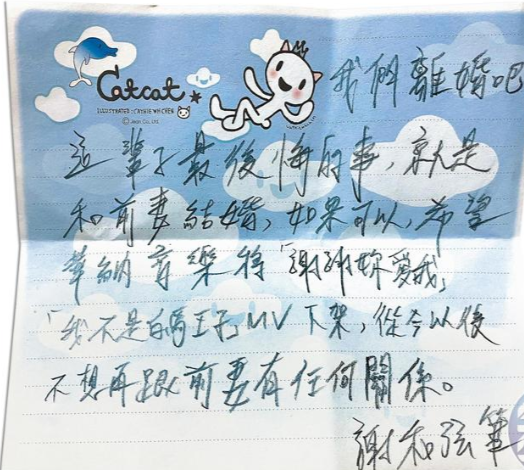 Catcat
ILLUSTRATED : CATHERINE CHEN
© Jean Co., Ltd.
我們離婚吧
這輩子最後悔的事，就是
和前妻結婚，如果可以，希望
華納音樂將「謝謝妳愛我」
「我不是白馬王子」MV下架，從今以後
不想再跟前妻有任何關係。
謝和弦筆